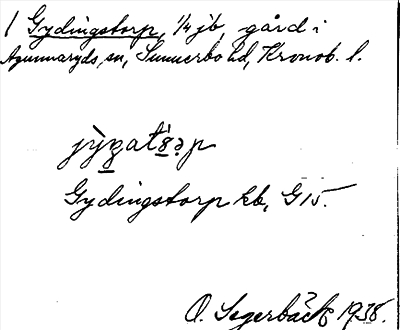 1 Gydingstorp, 1/4 jb, gård i
Agunnaryds sn, Sunnerbo hd, Kronob. l.
Gydingstorp kb, G15.
O. Segerbäck 1938.